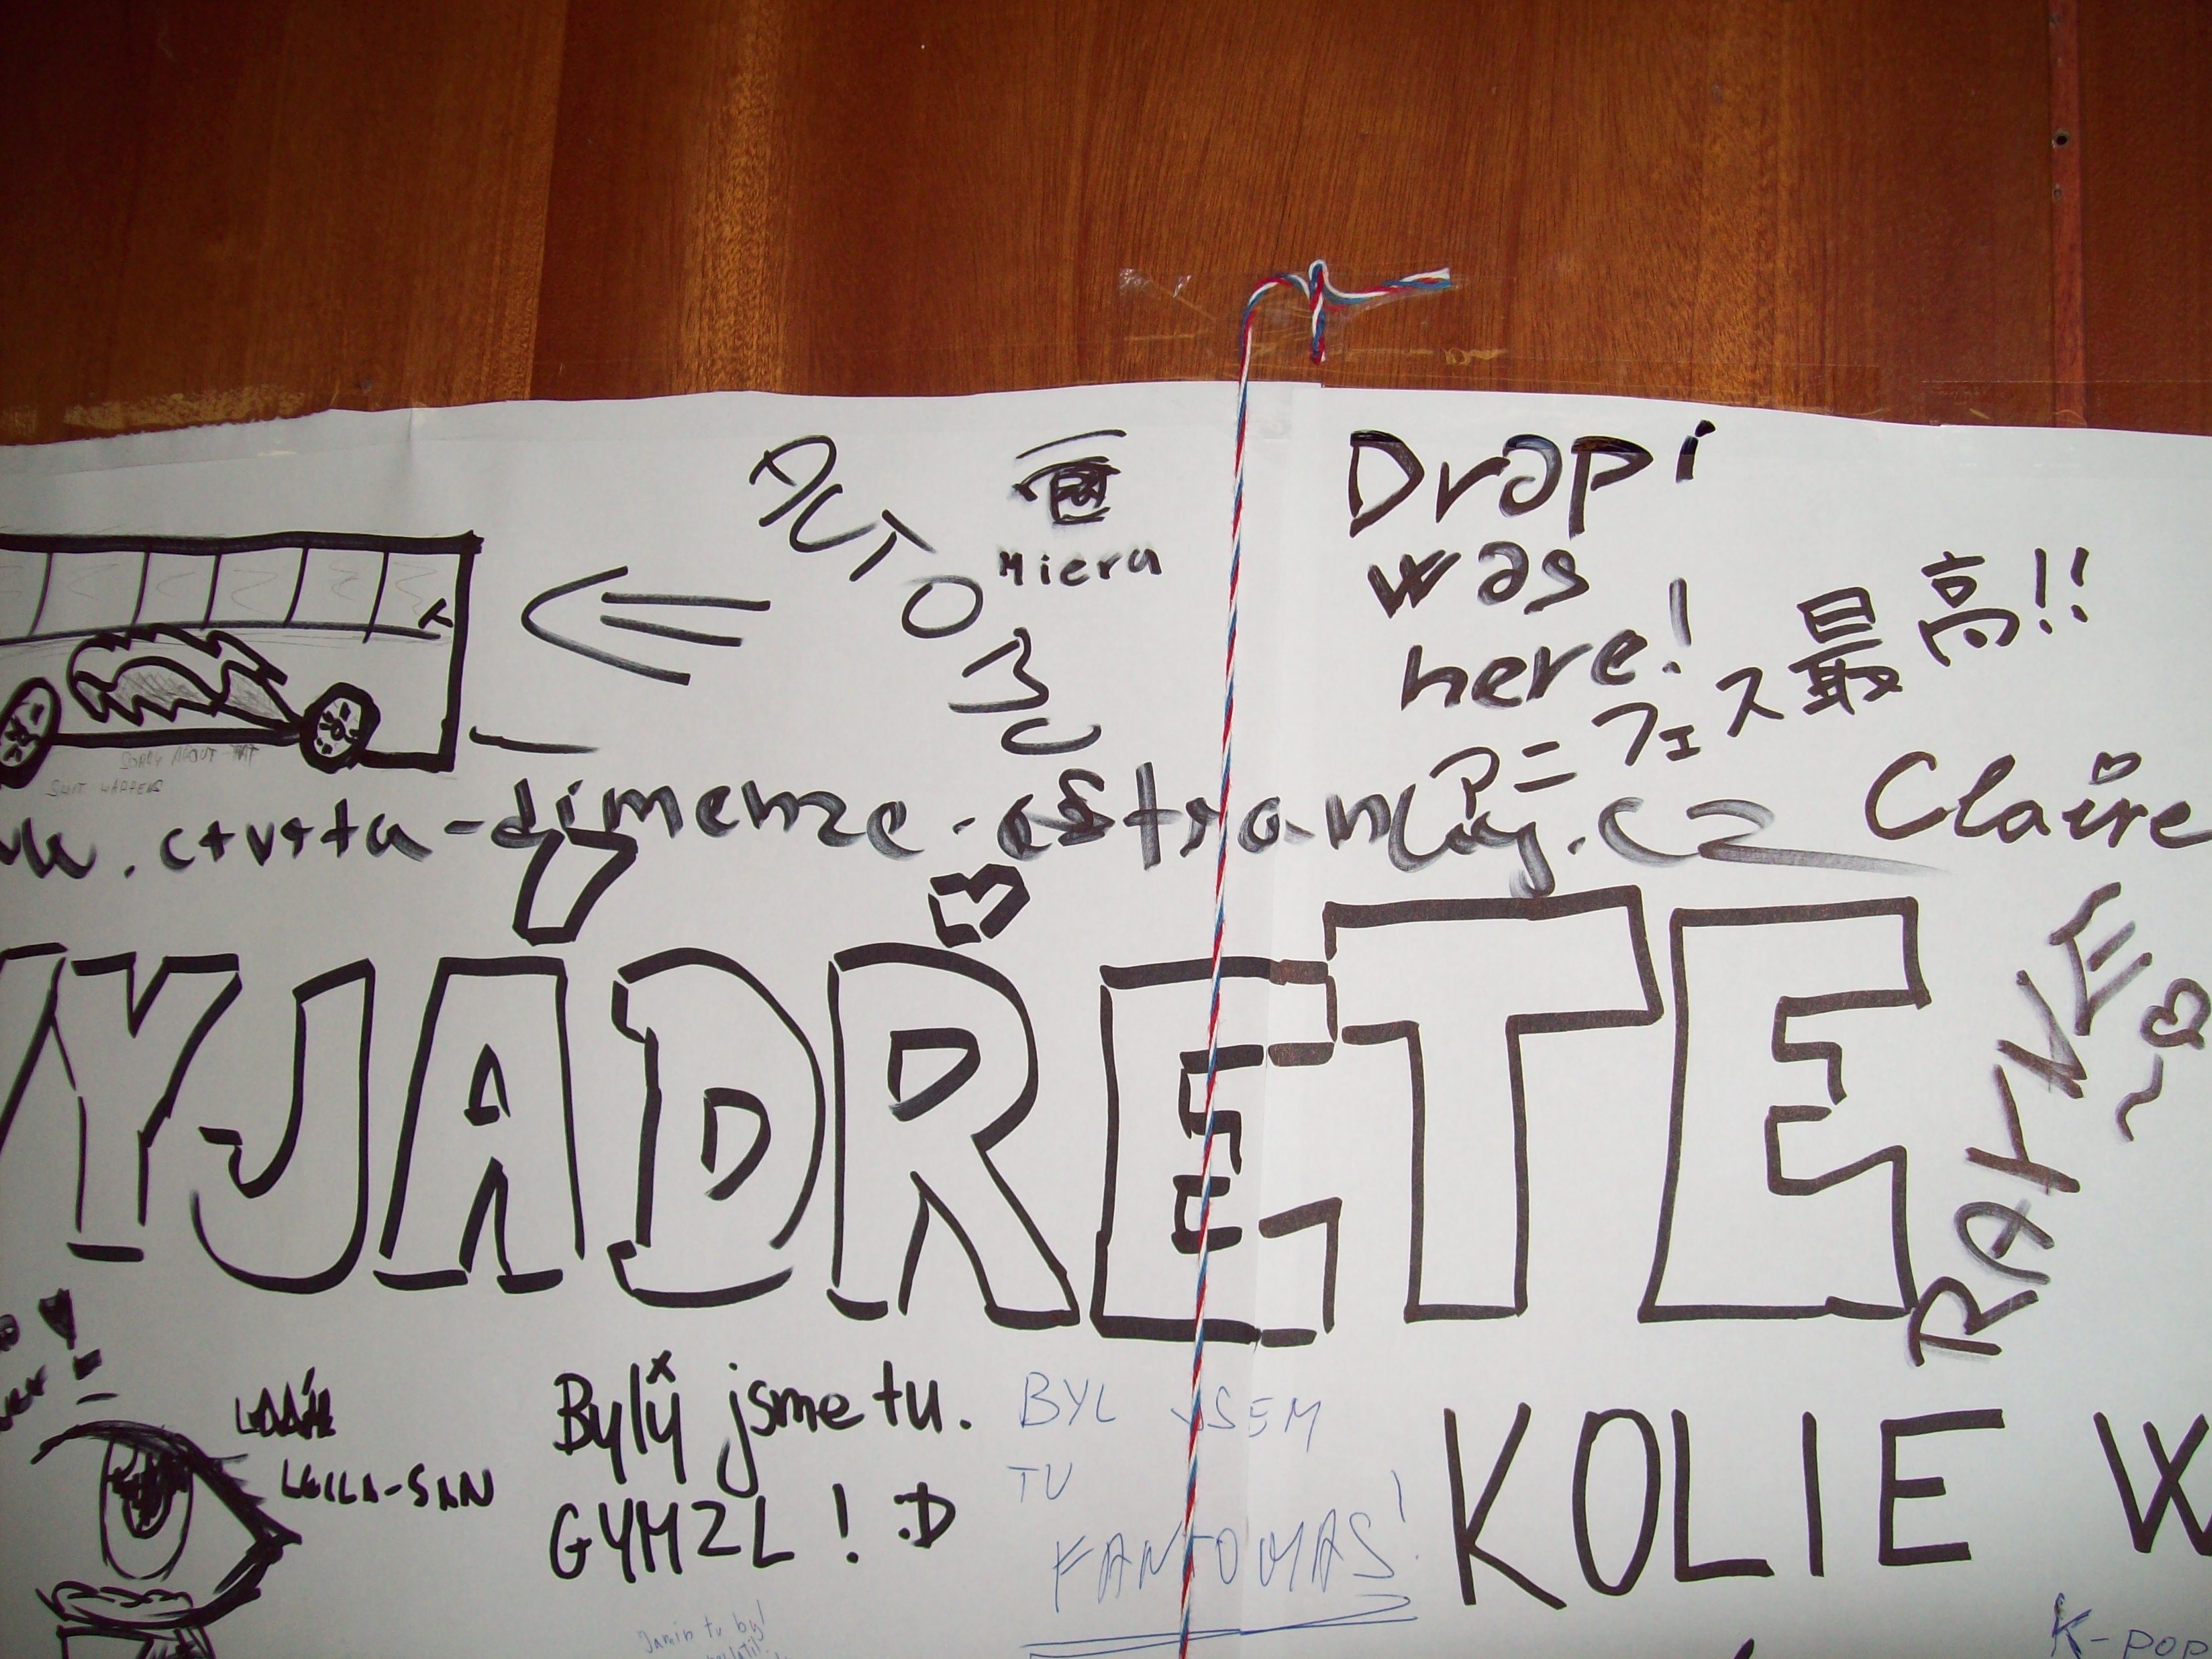 AUTOBUS
Miera
Drapi
was
here!
アニフェス最高!!
SORRY ABOUT THAT
SHIT HAPPENS
.ctvrta-dimenze.
.cz
Claire
VYJÁDŘETE
RAKNE
LEILA-SAN
Bylÿ jsme tu.
GYMZL ! :D
BYL JSEM
TU
FANTOMAS!
KOLIE W
Jamin tu byl
K-POP